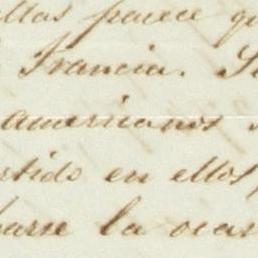 ellas parece qu
Francia. S
americanos
rtido en ellos,
barse la ocas